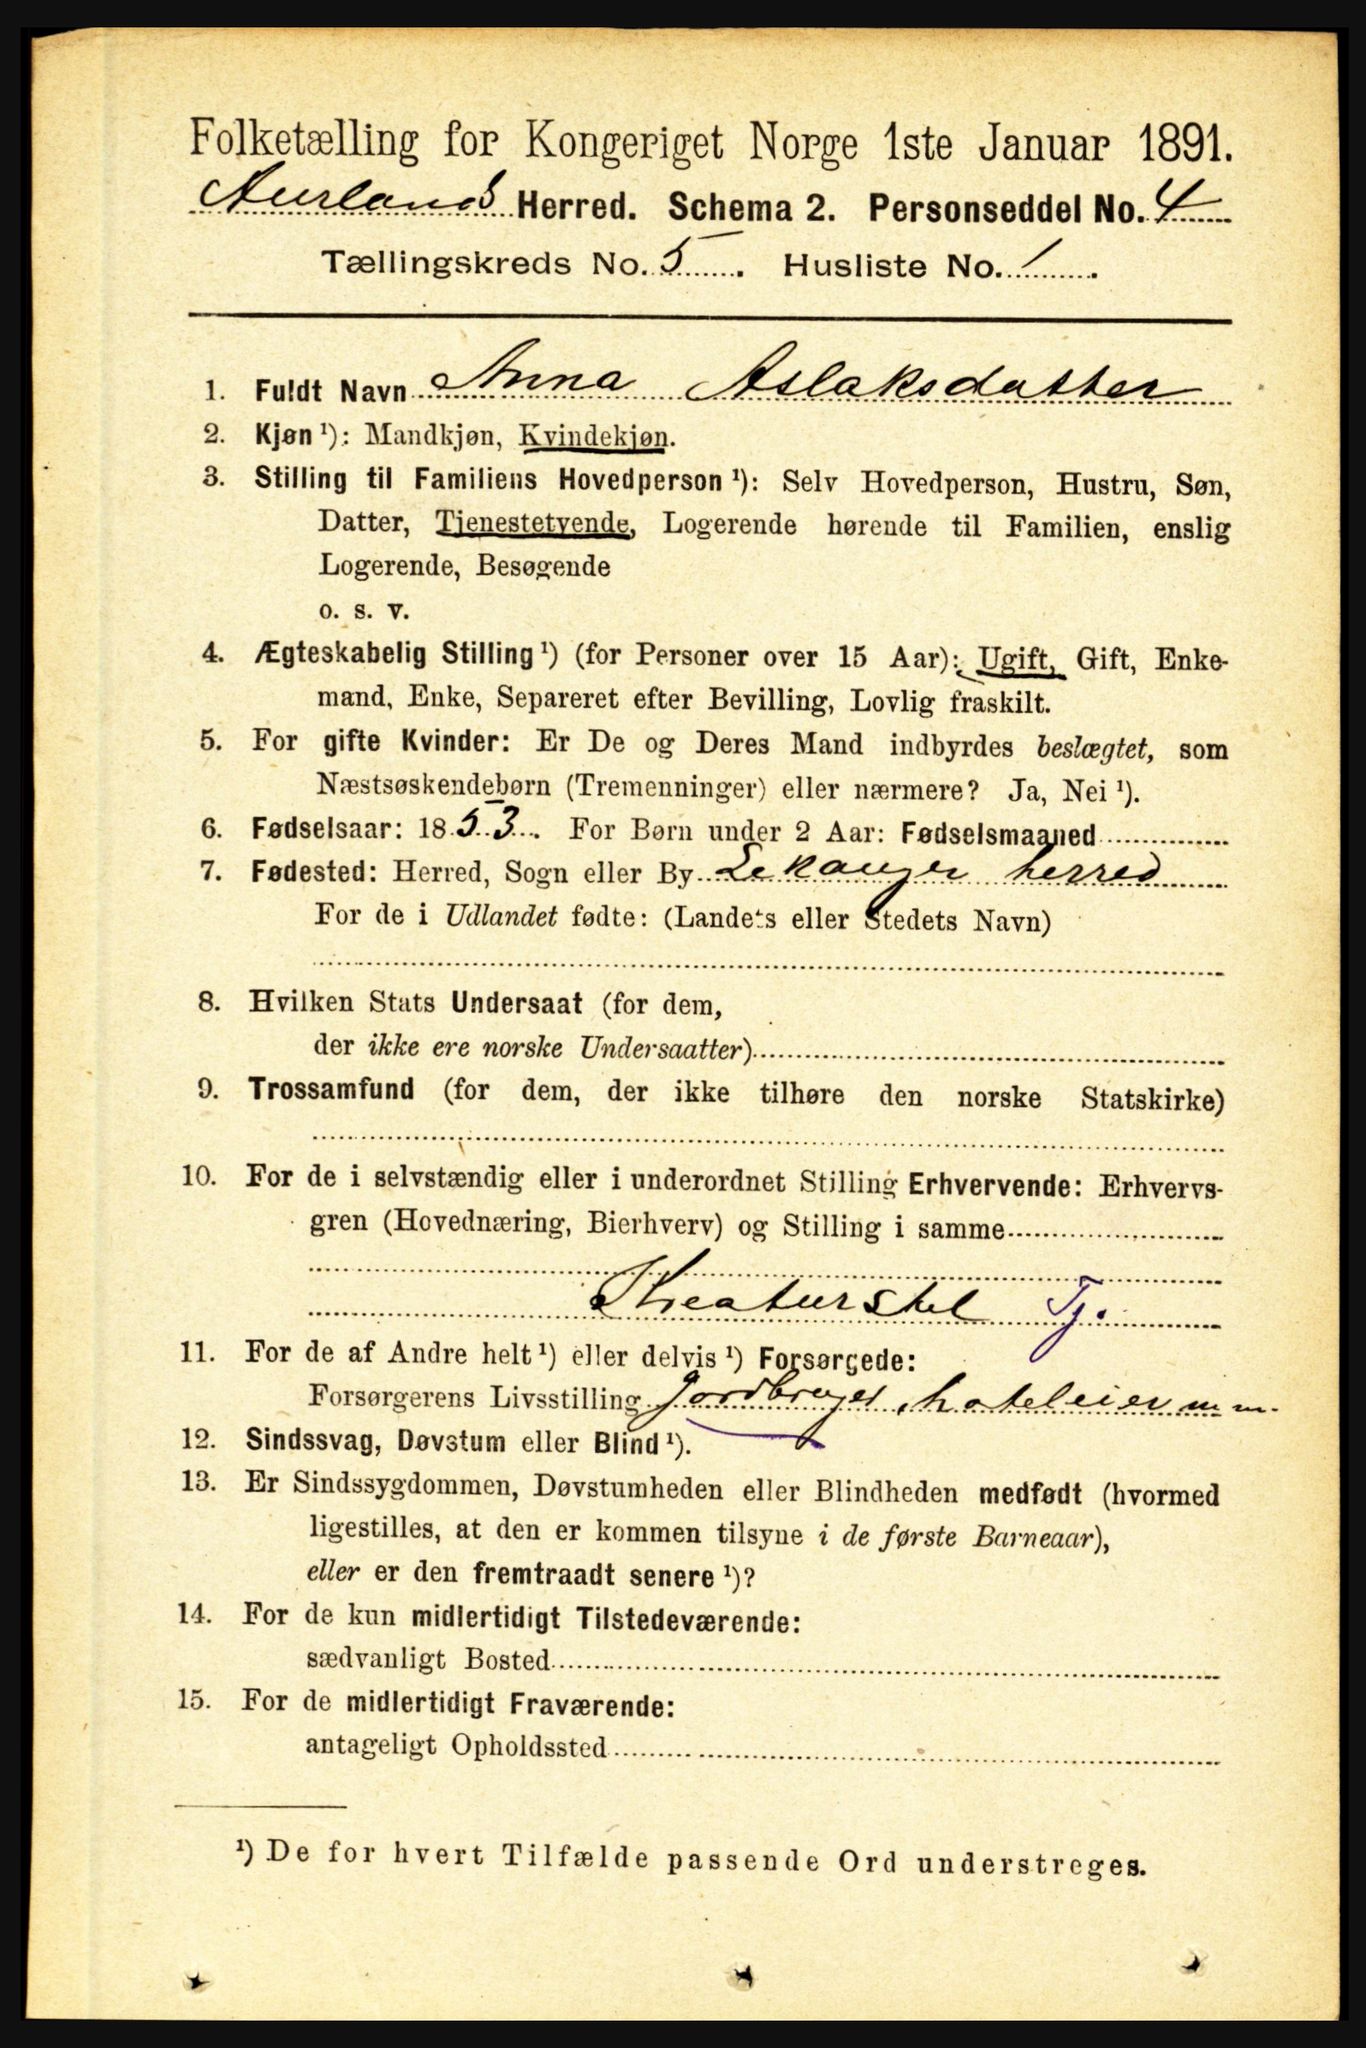 Folketælling for Kongeriget Norge 1ste Januar 1891.
Aurlands Herred. Schema 2. Personseddel No. 4
Tællingskreds No. 5. Husliste No. 1.
1. Fuldt Navn Anna Aslaksdatter
2. Kjøn ¹): Mandkjøn, Kvindekjøn.
3. Stilling til Familiens Hovedperson ¹): Selv Hovedperson, Hustru, Søn,
Datter, Tjenestetyende, Logerende hørende til Familien, enslig
Logerende, Besøgende
o. s. v.
4. Ægteskabelig Stilling ¹) (for Personer over 15 Aar): Ugift, Gift, Enke-
mand, Enke, Separeret efter Bevilling, Lovlig fraskilt.
5. For gifte Kvinder: Er De og Deres Mand indbyrdes beslægtet, som
Næstsøskendebørn (Tremenninger) eller nærmere? Ja, Nei ¹).
6. Fødselsaar: 1853. For Børn under 2 Aar: Fødselsmaaned
7. Fødested: Herred, Sogn eller By Lekanger herred
For de i Udlandet fødte: (Landets eller Stedets Navn)
8. Hvilken Stats Undersaat (for dem,
der ikke ere norske Undersaatter)
9. Trossamfund (for dem, der ikke tilhøre den norske Statskirke)
10. For de i selvstændig eller i underordnet Stilling Erhvervende: Erhvervs-
gren (Hovednæring, Bierhverv) og Stilling i samme
Kreaturstel Tj.
11. For de af Andre helt ¹) eller delvis ¹) Forsørgede:
Forsørgerens Livsstilling Jordbruger, hoteleier m m.
12. Sindssvag, Døvstum eller Blind ¹).
13. Er Sindssygdommen, Døvstumheden eller Blindheden medfødt (hvormed
ligestilles, at den er kommen tilsyne i de første Barneaar),
eller er den fremtraadt senere ¹)?
14. For de kun midlertidigt Tilstedeværende:
sædvanligt Bosted
15. For de midlertidigt Fraværende:
antageligt Opholdssted
¹) De for hvert Tilfælde passende Ord understreges.